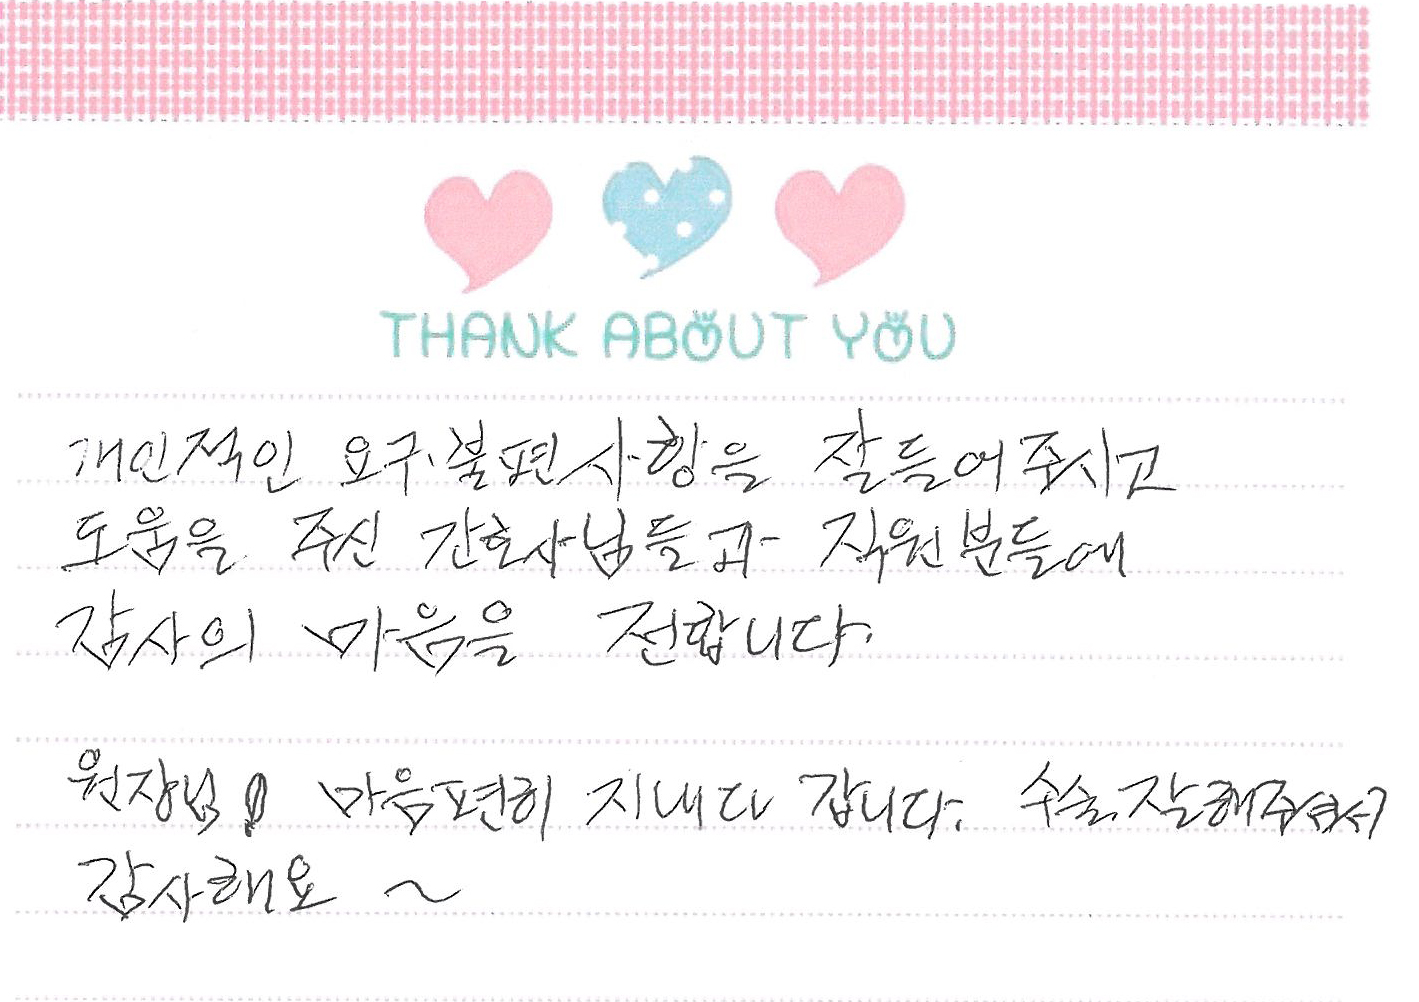 THANK ABOUT YOU
개인적인 요구·불편사항을 잘들어주시고
도움을 주신 간호사님들과 직원분들에
감사의 마음을 전합니다.
원장님! 마음편히 지내다 갑니다. 수술 잘해주셔서
감사해요 ~